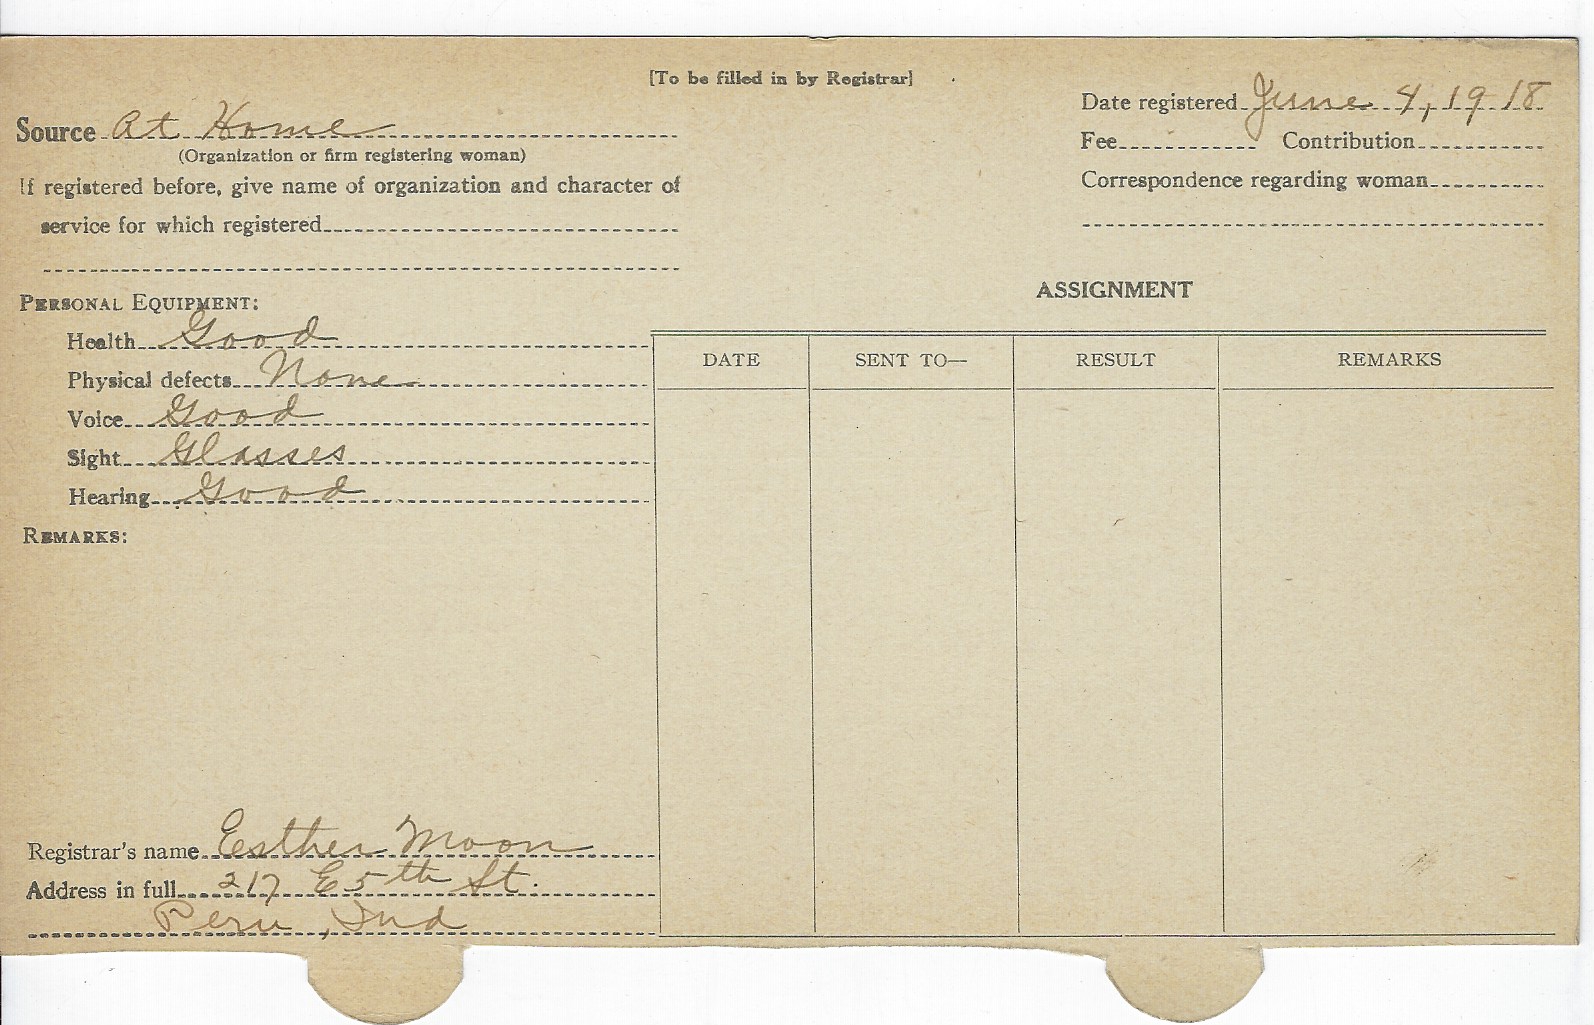 [To be filled in by Registrar]
Source At Home
(Organization or firm registering woman)
If registered before, give name of organization and character of
service for which registered
Date registered June 4, 1918
Fee Contribution
Correspondence regarding woman
PERSONAL EQUIPMENT:
Health Good
Physical defects None
Voice Good
Sight Glasses
Hearing Good
REMARKS:
ASSIGNMENT
DATE SENT TO— RESULT REMARKS
Registrar's name Esther Moon
Address in full 217 E 5th St.
Peru, Ind